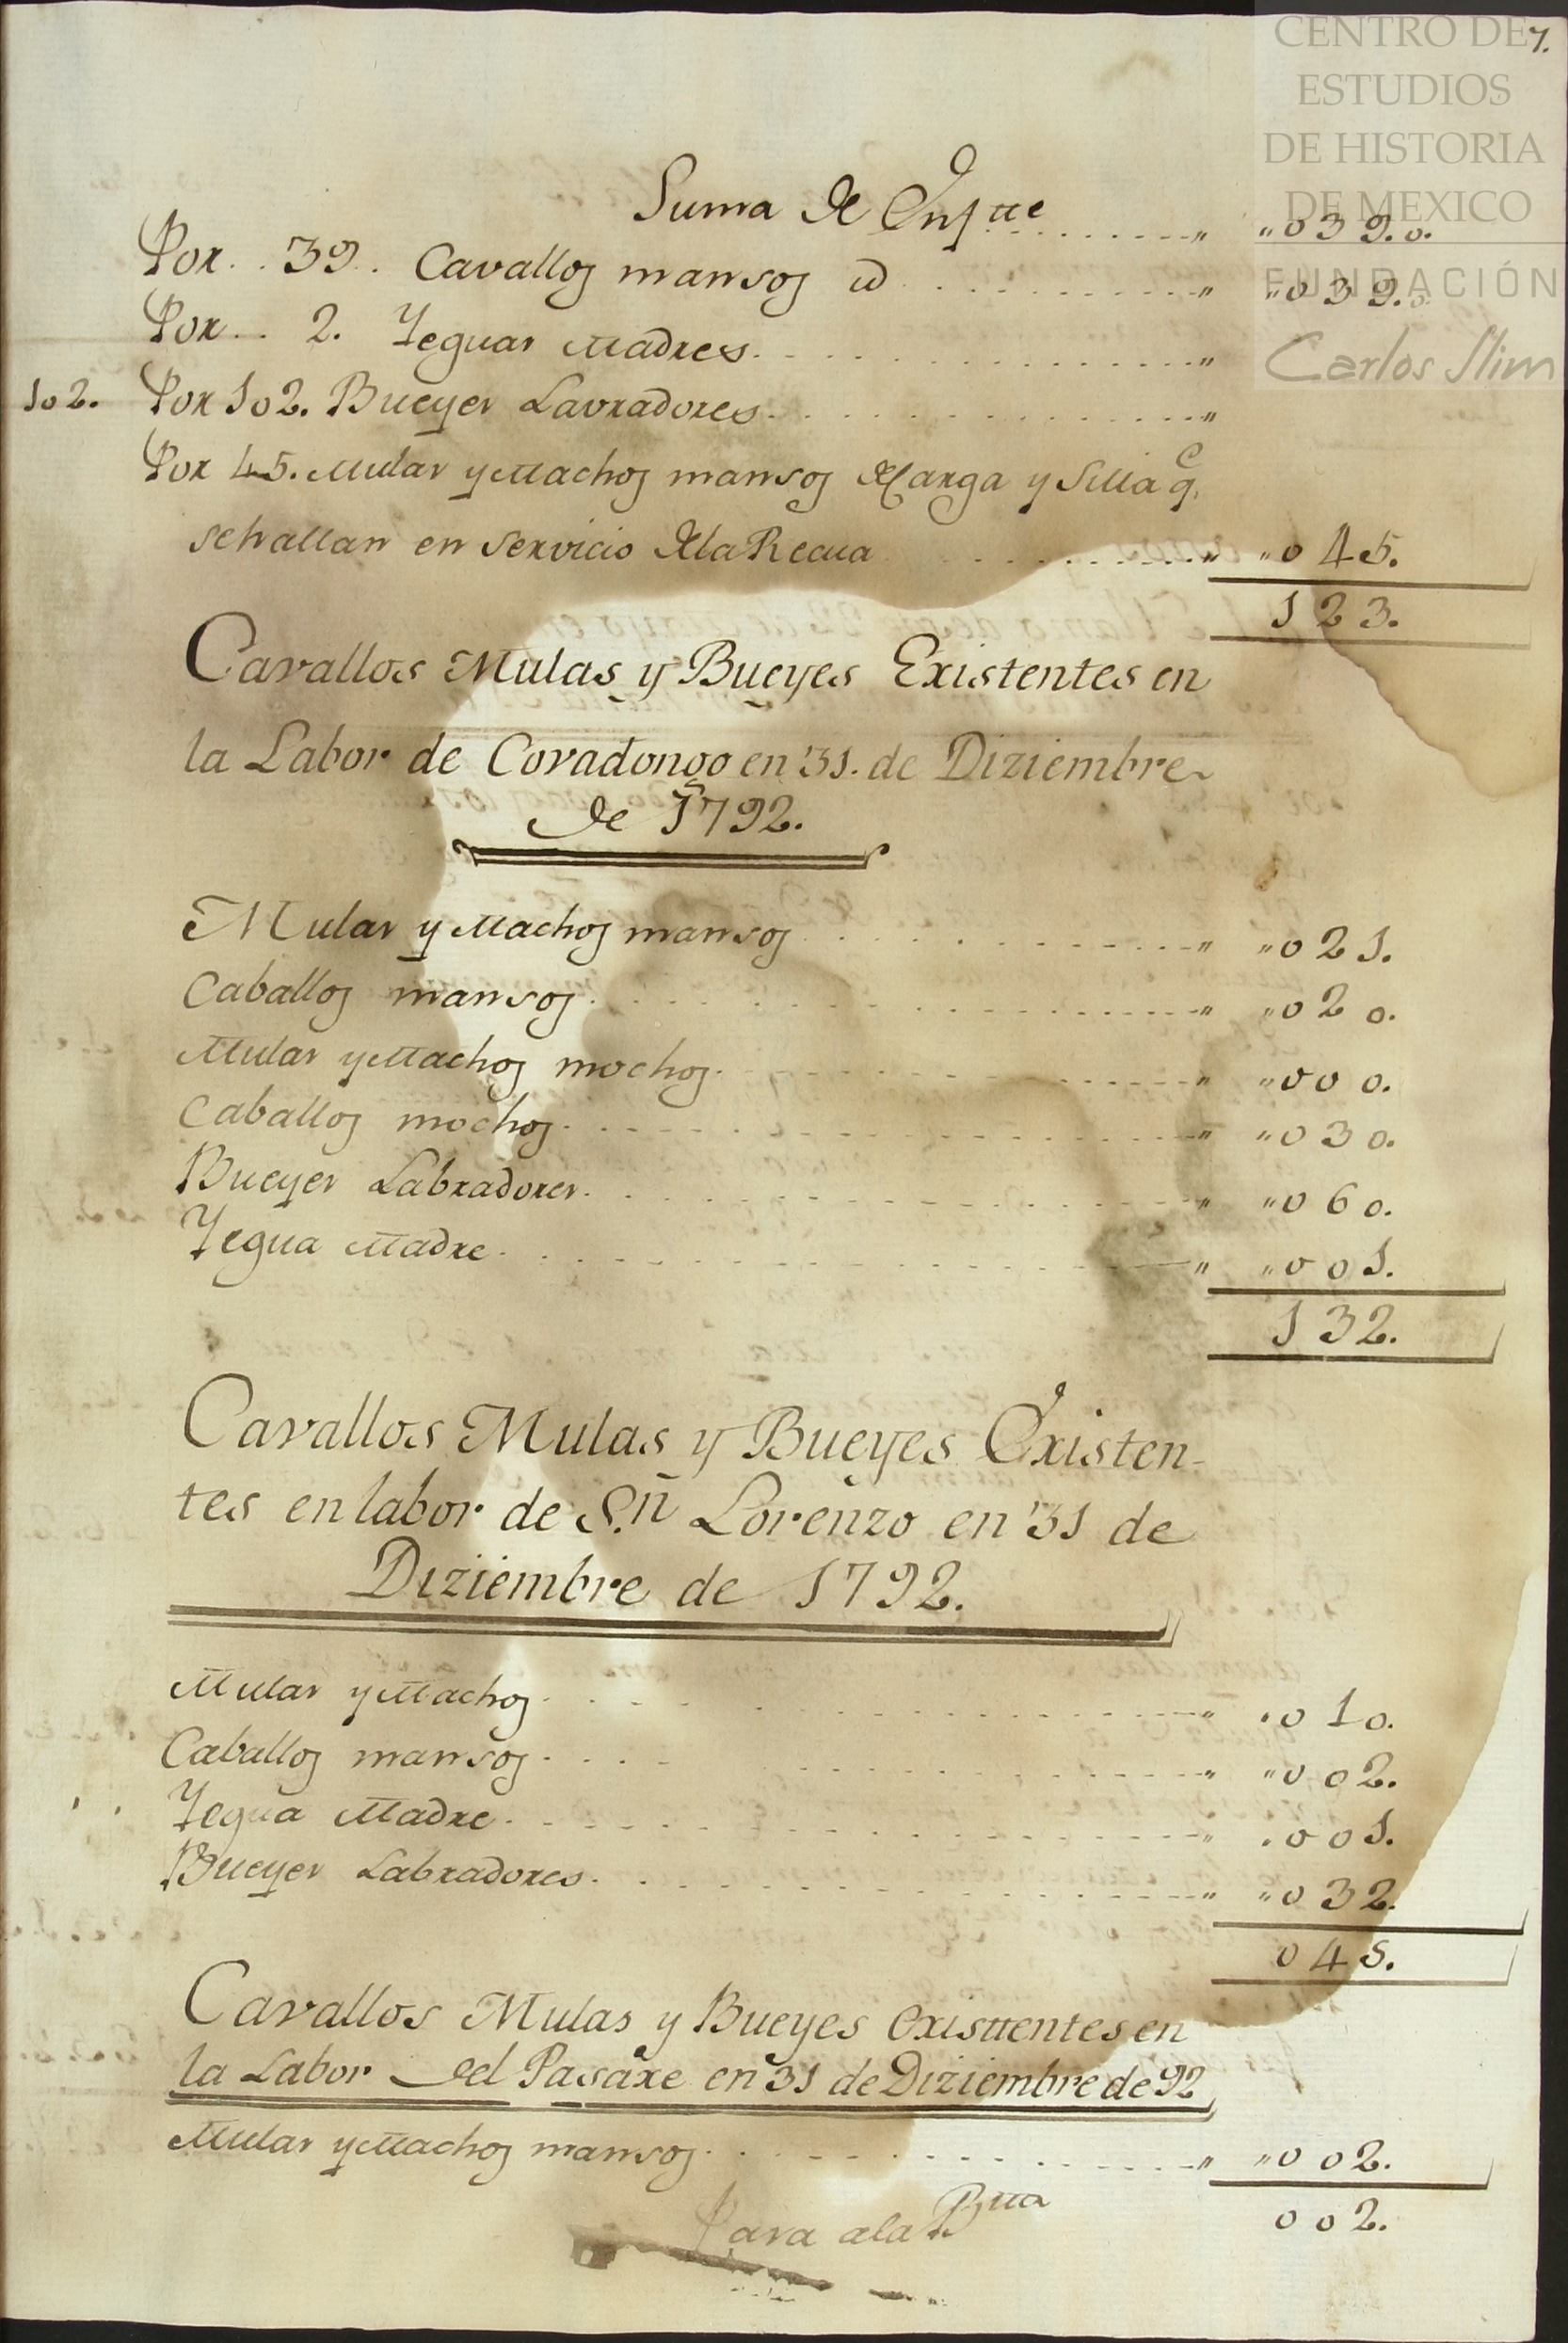 7.
CENTRO DE
ESTUDIOS
DE HISTORIA
DE MEXICO
FUNDACIÓN
Carlos Slim
Suma de Enftte " "039.o.
Por 39. Cavallos mansos id " "039.o.
Por 2. Yeguas Madres "
102. Por 102. Bueyes Lavradores "
Por 45. Mulas y Machos mansos de Carga y Silla q.e
se hallan en servicio de la Recua " "045.
123.
Cavallos Mulas y Bueyes Existentes en
la Labor de Covadongo en 31. de Diziembre
de 1792.
Mulas y Machos mansos " "021.
Caballos mansos " "020.
Mulas y Machos mochos " "000.
Caballos mochos " "030.
Bueyes Labradores " "060.
Yegua Madre " "001.
132.
Cavallos Mulas y Bueyes Existen-
tes en labor de S.n Lorenzo en 31 de
Diziembre de 1792.
Mulas y Machos " .010.
Caballos mansos " "002.
Yegua Madre " .001.
Bueyes Labradores " "032.
045.
Cavallos Mulas y Bueyes Existtentes en
la Labor del Pasaxe en 31 de Diziembre de 92
Mulas y Machos mansos " "002.
002.
Pasa a la Btta